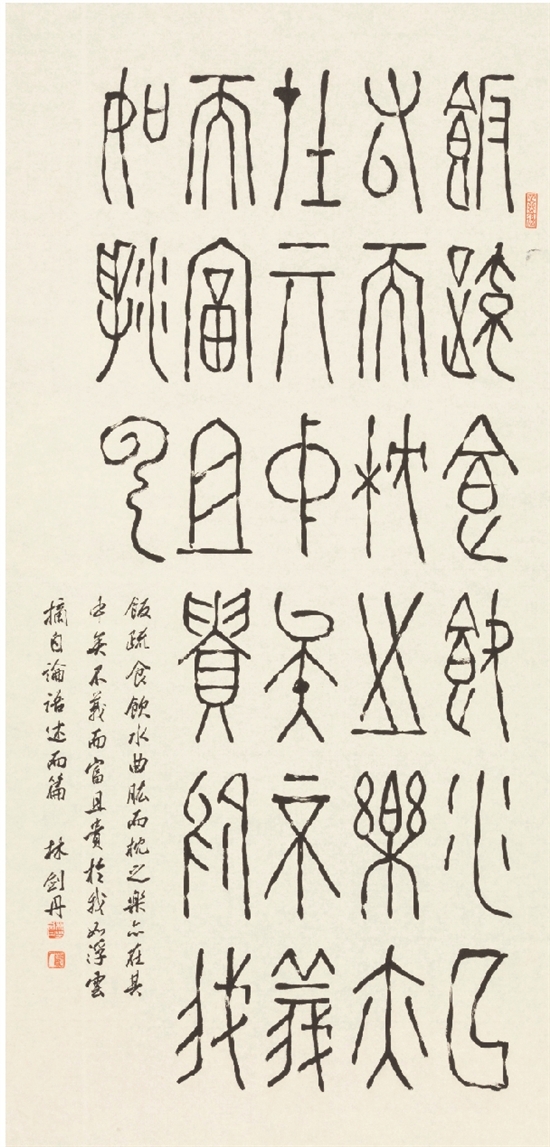 飯疏食飲水曲
厷而枕之樂亦
在亓中矣不義
而富且貴於我
如浮云
飯疏食飲水曲肱而枕之樂亦在其
中矣不義而富且貴於我如浮雲
摘自論語述而篇 林劍丹